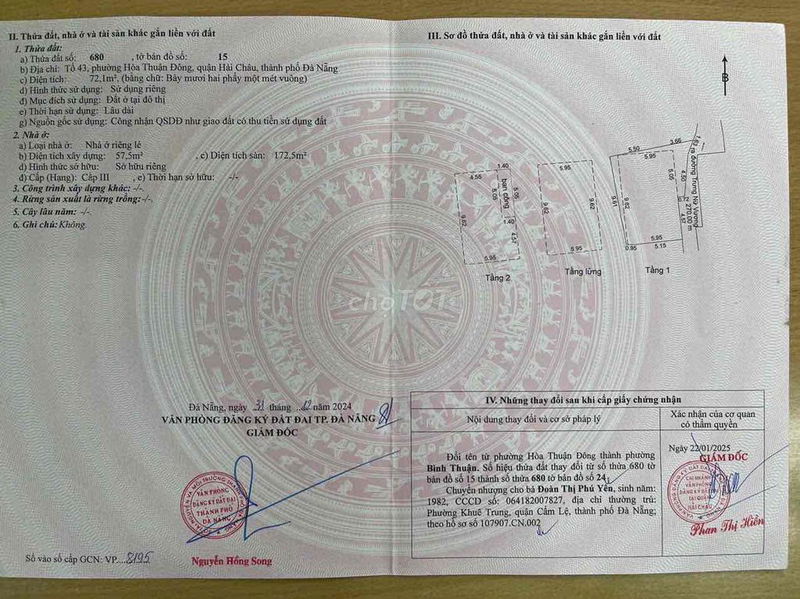 II. Thửa đất, nhà ở và tài sản khác gắn liền với đất
1. Thửa đất:
a) Thửa đất số: 680 , tờ bản đồ số: 15
b) Địa chỉ: Tổ 43, phường Hòa Thuận Đông, quận Hải Châu, thành phố Đà Nẵng
c) Diện tích: 72,1m². (bằng chữ: Bảy mươi hai phẩy một mét vuông)
d) Hình thức sử dụng: Sử dụng riêng
đ) Mục đích sử dụng: Đất ở tại đô thị
e) Thời hạn sử dụng: Lâu dài
g) Nguồn gốc sử dụng: Công nhận QSDĐ như giao đất có thu tiền sử dụng đất
2. Nhà ở:
a) Loại nhà ở: Nhà ở riêng lẻ
b) Diện tích xây dựng: 57,5m² , c) Diện tích sàn: 172,5m²
d) Hình thức sở hữu: Sở hữu riêng
đ) Cấp (Hạng): Cấp III , e) Thời hạn sở hữu: -/-
3. Công trình xây dựng khác: -/-.
4. Rừng sản xuất là rừng trồng: -/-.
5. Cây lâu năm: -/-
6. Ghi chú: Không.
Đà Nẵng, ngày 31 tháng 12 năm 2024
VĂN PHÒNG ĐĂNG KÝ ĐẤT ĐAI TP. ĐÀ NẴNG
GIÁM ĐỐC
VĂN PHÒNG
ĐĂNG KÝ ĐẤT ĐAI
THÀNH PHỐ
ĐÀ NẴNG
Nguyễn Hồng Song
Số vào sổ cấp GCN: VP 8195
choTỐT
III. Sơ đồ thửa đất, nhà ở và tài sản khác gắn liền với đất
B
1.40
4.56
5.05
ban công
5.05
9.62
1.40
4.57
5.95
Tầng 2
5.95
9.62
9.62
5.95
Tầng lửng
5.50
3.66
5.95
5.05
4.50
9.91
9.62
4.57
5.95
0.85
5.15
Tầng 1
1.63 ra đường Trưng Nữ Vương
270.00 m
IV. Những thay đổi sau khi cấp giấy chứng nhận
Nội dung thay đổi và cơ sở pháp lý
Xác nhận của cơ quan
có thẩm quyền
Đổi tên từ phường Hòa Thuận Đông thành phường
Bình Thuận. Số hiệu thửa đất thay đổi từ số thửa 680 tờ
bản đồ số 15 thành số thửa 680 tờ bản đồ số 24.
Chuyển nhượng cho bà Đoàn Thị Phú Yên, sinh năm:
1982, CCCD số: 064182007827, địa chỉ thường trú:
Phường Khuê Trung, quận Cẩm Lệ, thành phố Đà Nẵng;
theo hồ sơ số 107907.CN.002
Ngày 22/01/2025
GIÁM ĐỐC
CHI NHÁNH
VĂN PHÒNG
ĐĂNG KÝ ĐẤT ĐAI
TẠI QUẬN
HẢI CHÂU
Phan Thị Hiền